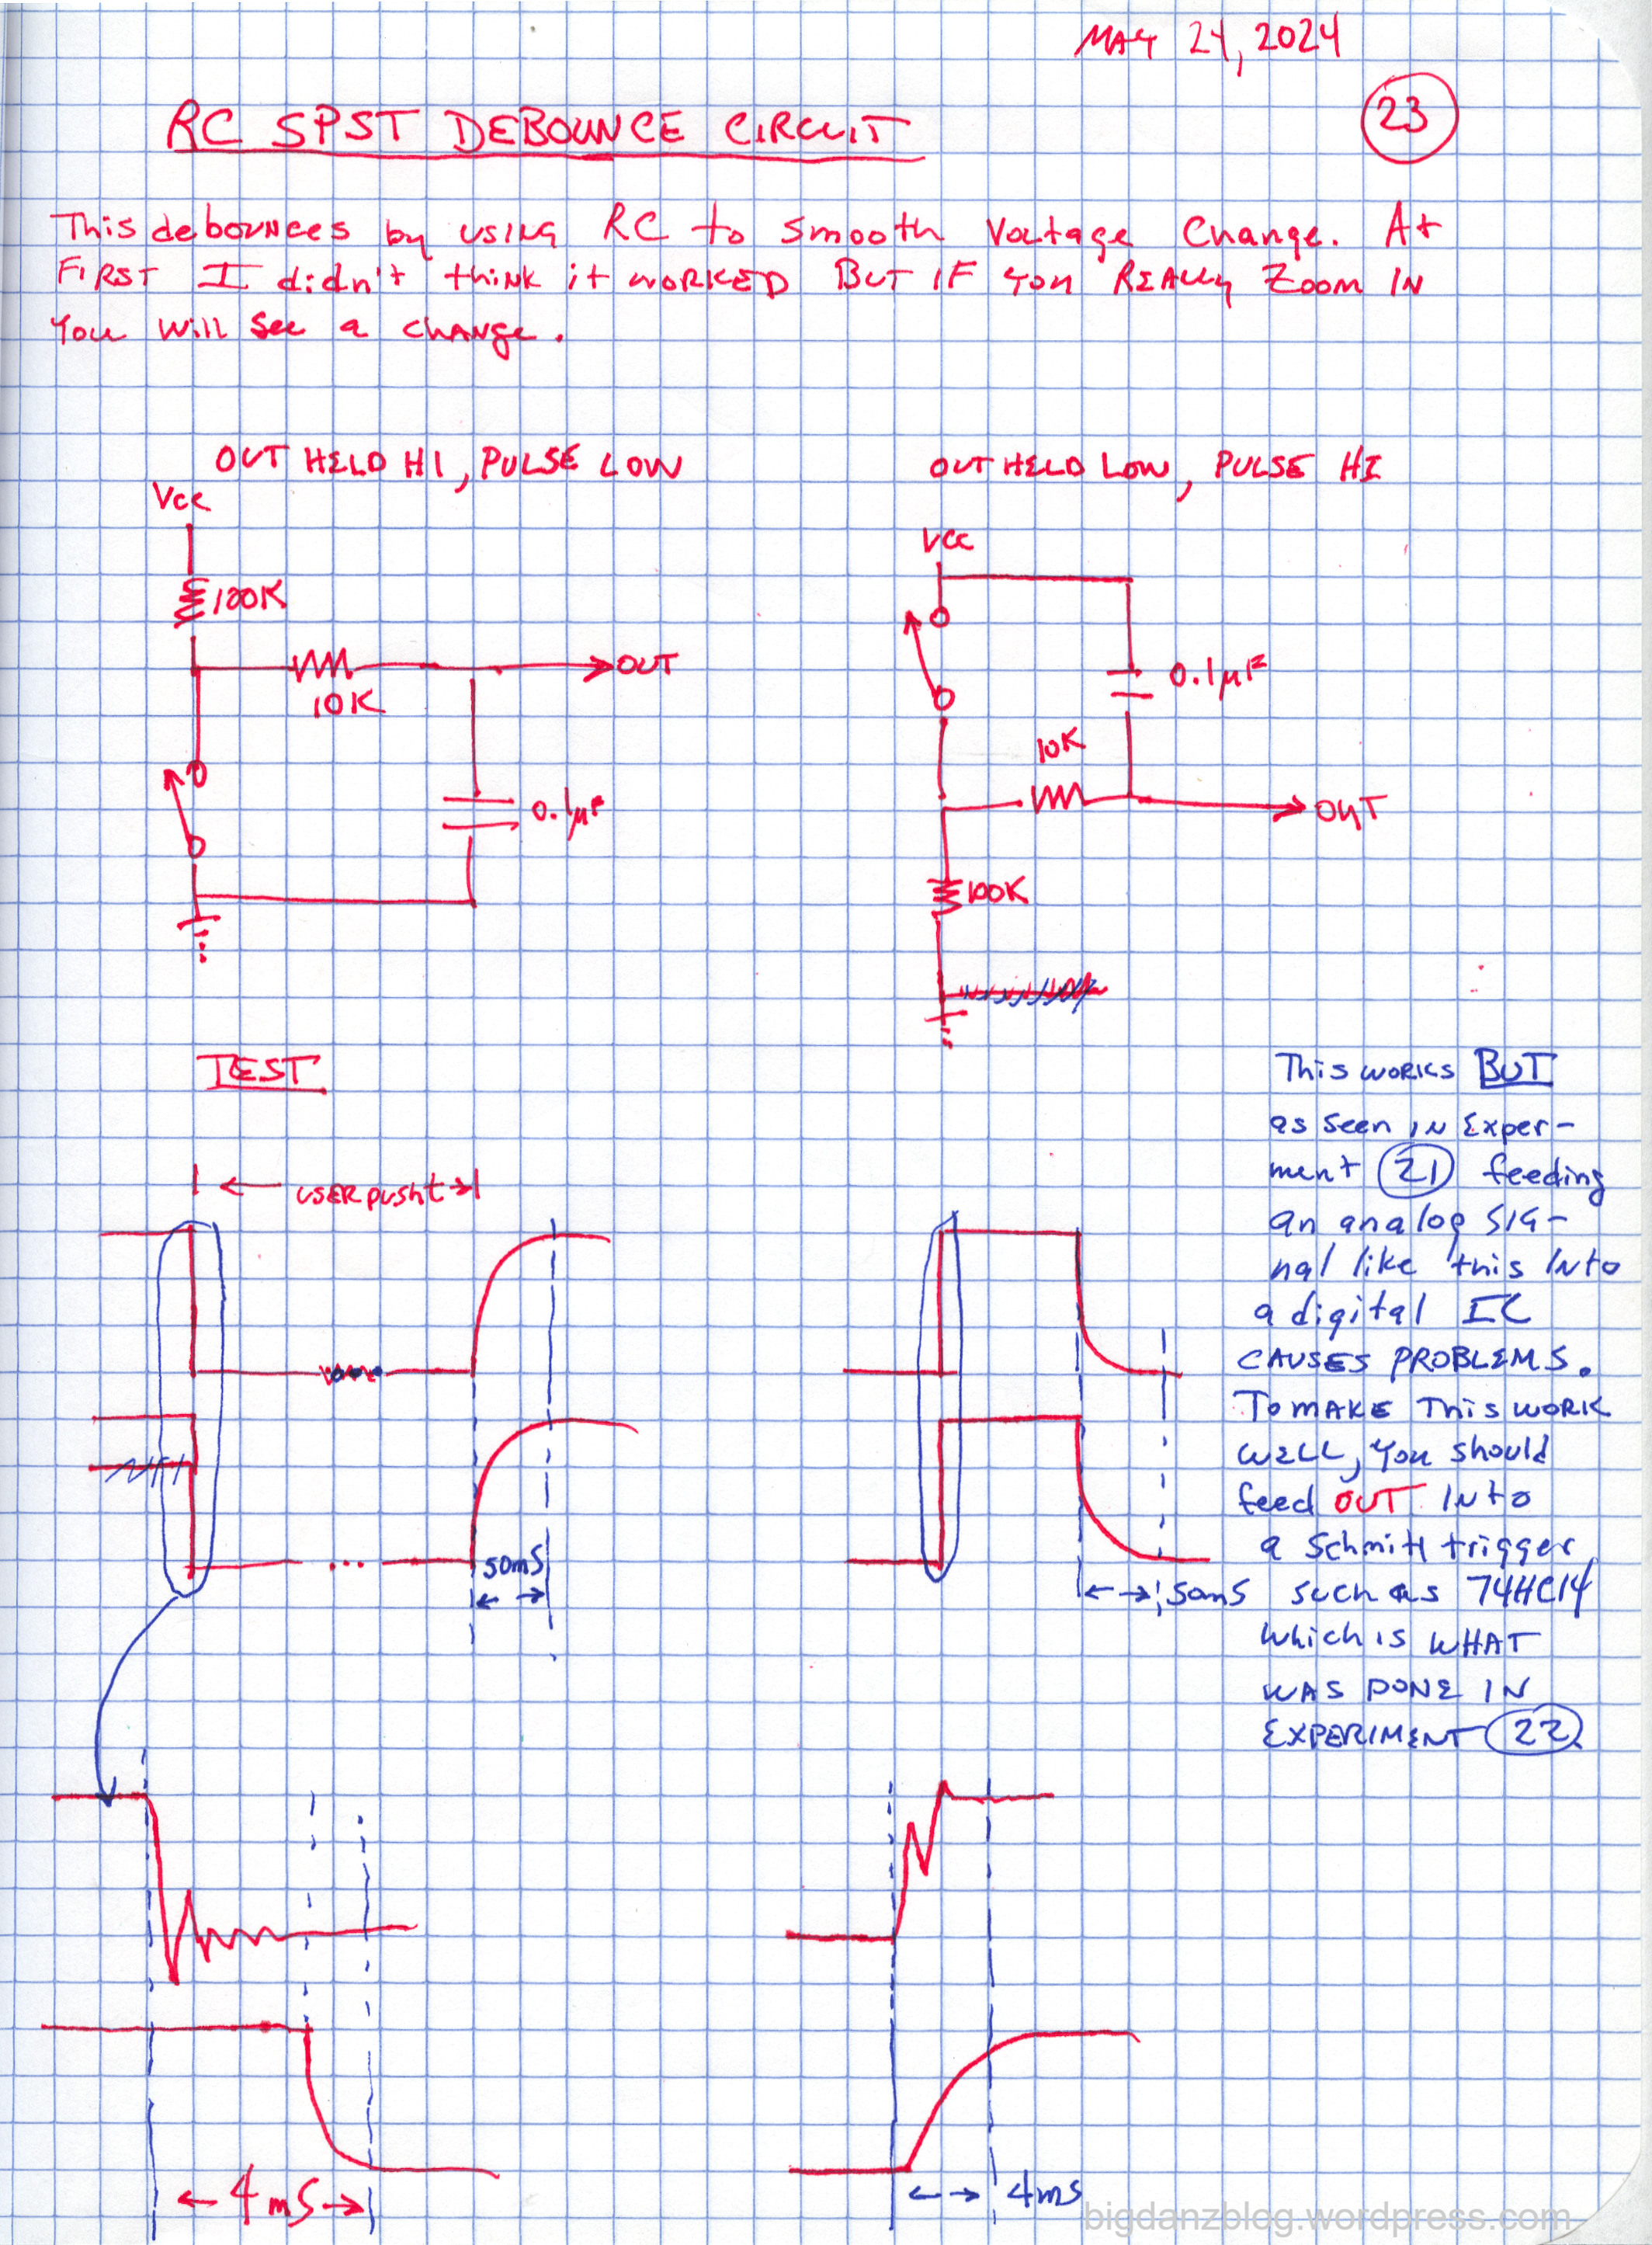 MAY 24, 2024
23
RC SPST DEBOUNCE CIRCUIT
This debounces by using RC to smooth Voltage Change. At
FIRST I didn't think it WORKED BUT IF you REALLY Zoom IN
You will see a change.
OUT HELD HI, PULSE LOW
Vcc
100K
10K
OUT
0.1µF
OUT HELD LOW, PULSE HI
VCC
0.1µF
10K
OUT
100K
TEST
USER push t
50mS
50mS
This works BUT
as seen IN Exper-
ment 21 feeding
an analog SIG-
nal like this Into
a digital IC
CAUSES PROBLEMS.
TO MAKE This WORK
WELL, you should
feed OUT Into
a Schmitt trigger
such as 74HC14
which is WHAT
WAS DONE IN
EXPERIMENT 22
4mS
4mS
bigdanzblog.wordpress.com